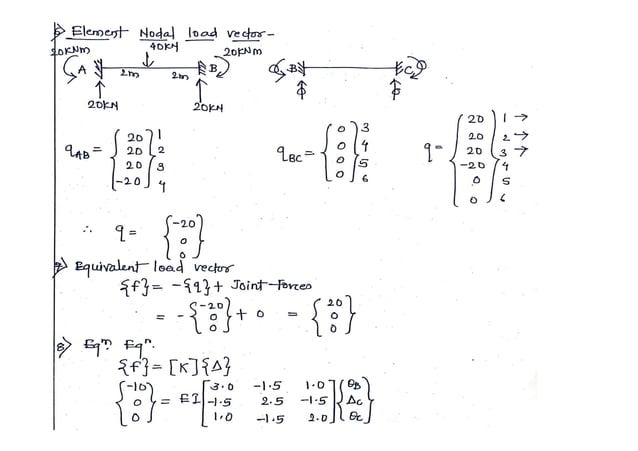 6) Element Nodal load vector-
20KNm 40KN 20KNm
A 2m 2m B B C
20KN 20KN 0 0
qAB = {20 20 20 -20} 1 2 3 4
qBC = {0 0 0 0} 3 4 5 6
q = {20 20 20 -20 0 0} 1→ 2→ 3→ 4 5 6
∴ q = {-20 0 0}
7) Equivalent load vector
{f} = -{q} + Joint-Forces
= -{-20 0 0} + 0 = {20 0 0}
8) Eqm Eqn.
{f} = [K]{Δ}
{-10 0 0} = EI [3.0 -1.5 1.0
-1.5 2.5 -1.5
1.0 -1.5 2.0] {θB ΔC θC}